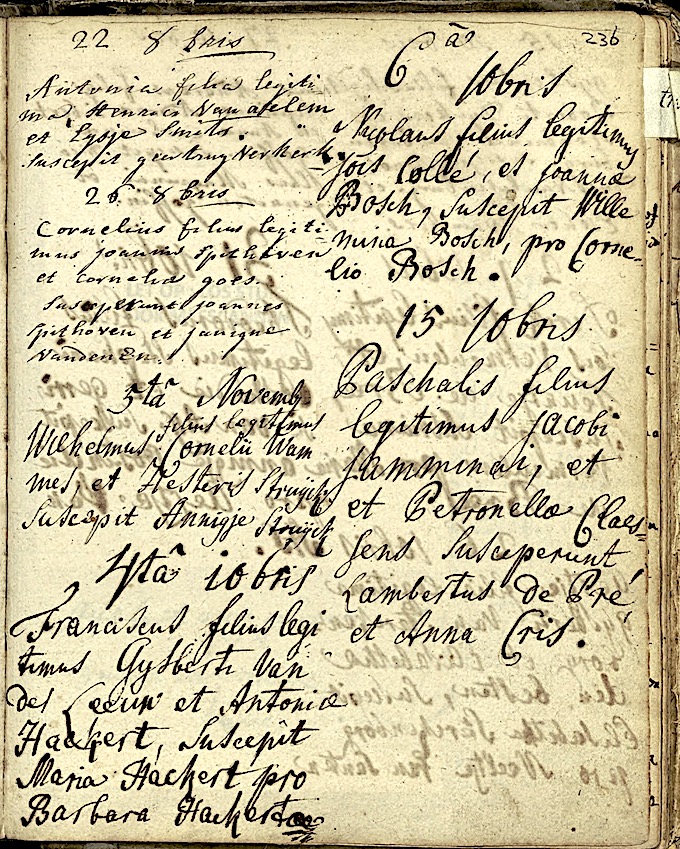 22 8 bris
Antonia filia legiti-
ma Henrici Van atelem
et Eysje Smits.
Suscepit geertruy Verkerk
26. 8 bris
Cornelius filius legiti-
mus joannis Spithoven
et cornelia goes.
Susceperunt joannes
Spithoven et janigne
Vanden En.
5ta Novemb
Wilhelmus filius legitimus Cornelii Wam
mes, et Hesteris Struijck
Suscepit Annigje Struijck
4tâ 10bris
Franciscus filius legi
timus Gysberti Van
der Leeuw et Antoniæ
Hackert, Suscepit
Maria Hackert pro
Barbara Hackert
236
6â 10bris
Nicolaus filius legitimus
jois Collé, et joannæ
Bosch, Suscepit Wille
mina Bosch, pro Corne-
lio Bosch.
15 10bris
Paschalis filius
legitimus Jacobi
, et
et Petronellæ Claes=
sens Susceperunt
Lambertus de Pré
et Anna Cris.